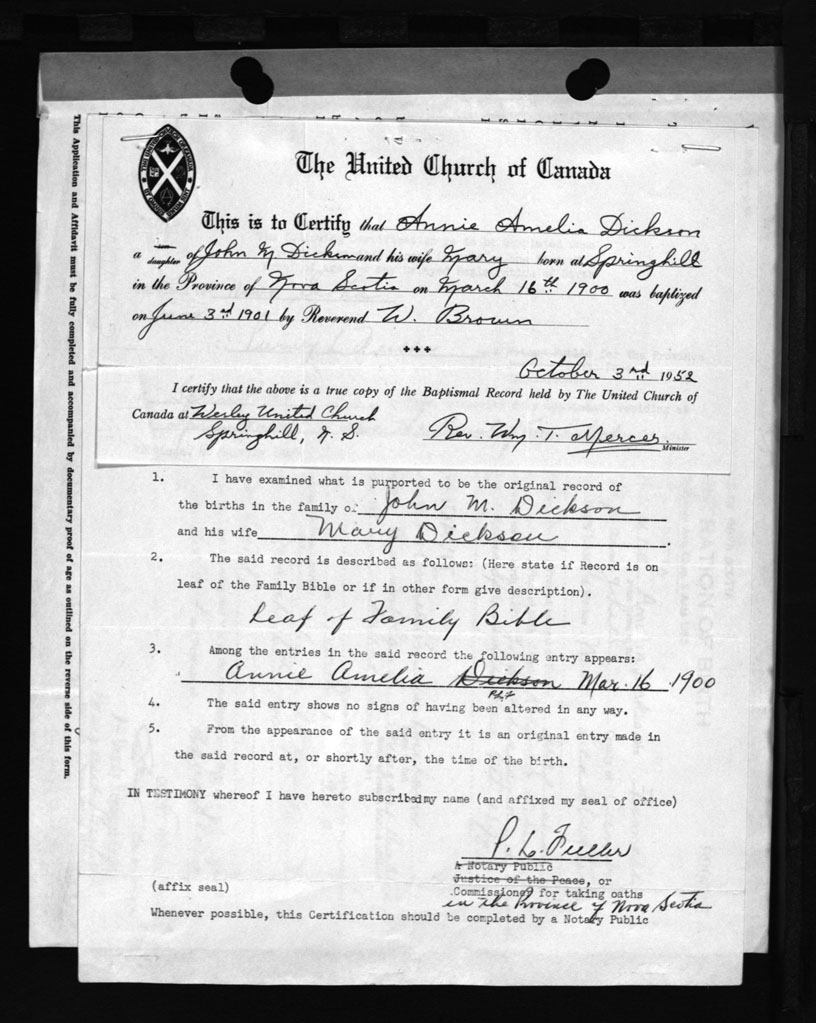 The United Church of Canada
This is to Certify that Annie Amelia Dickson
a daughter of John M Dickson and his wife Mary born at Springhill
in the Province of Nova Scotia on March 16th 1900 was baptized
on June 3rd 1901 by Reverend W. Brown
October 3rd 1952
I certify that the above is a true copy of the Baptismal Record held by The United Church of
Canada at Wesley United Church
Springhill, N. S. Rev. Wm. T. Mercer
Minister
1. I have examined what is purported to be the original record of
the births in the family of John M. Dickson
and his wife Mary Dickson.
2. The said record is described as follows: (Here state if Record is on
leaf of the Family Bible or if in other form give description).
Leaf of Family Bible
3. Among the entries in the said record the following entry appears:
Annie Amelia Dickson Mar. 16 1900
4. The said entry shows no signs of having been altered in any way.
5. From the appearance of the said entry it is an original entry made in
the said record at, or shortly after, the time of the birth.
IN TESTIMONY whereof I have hereto subscribed my name (and affixed my seal of office)
P. L. Fuller
A Notary Public
Justice of the Peace, or
(affix seal) Commissioner for taking oaths
in the Province of Nova Scotia
Whenever possible, this Certification should be completed by a Notary Public
This Application and Affidavit must be fully completed and accompanied by documentary proof of age as outlined on the reverse side of this form.